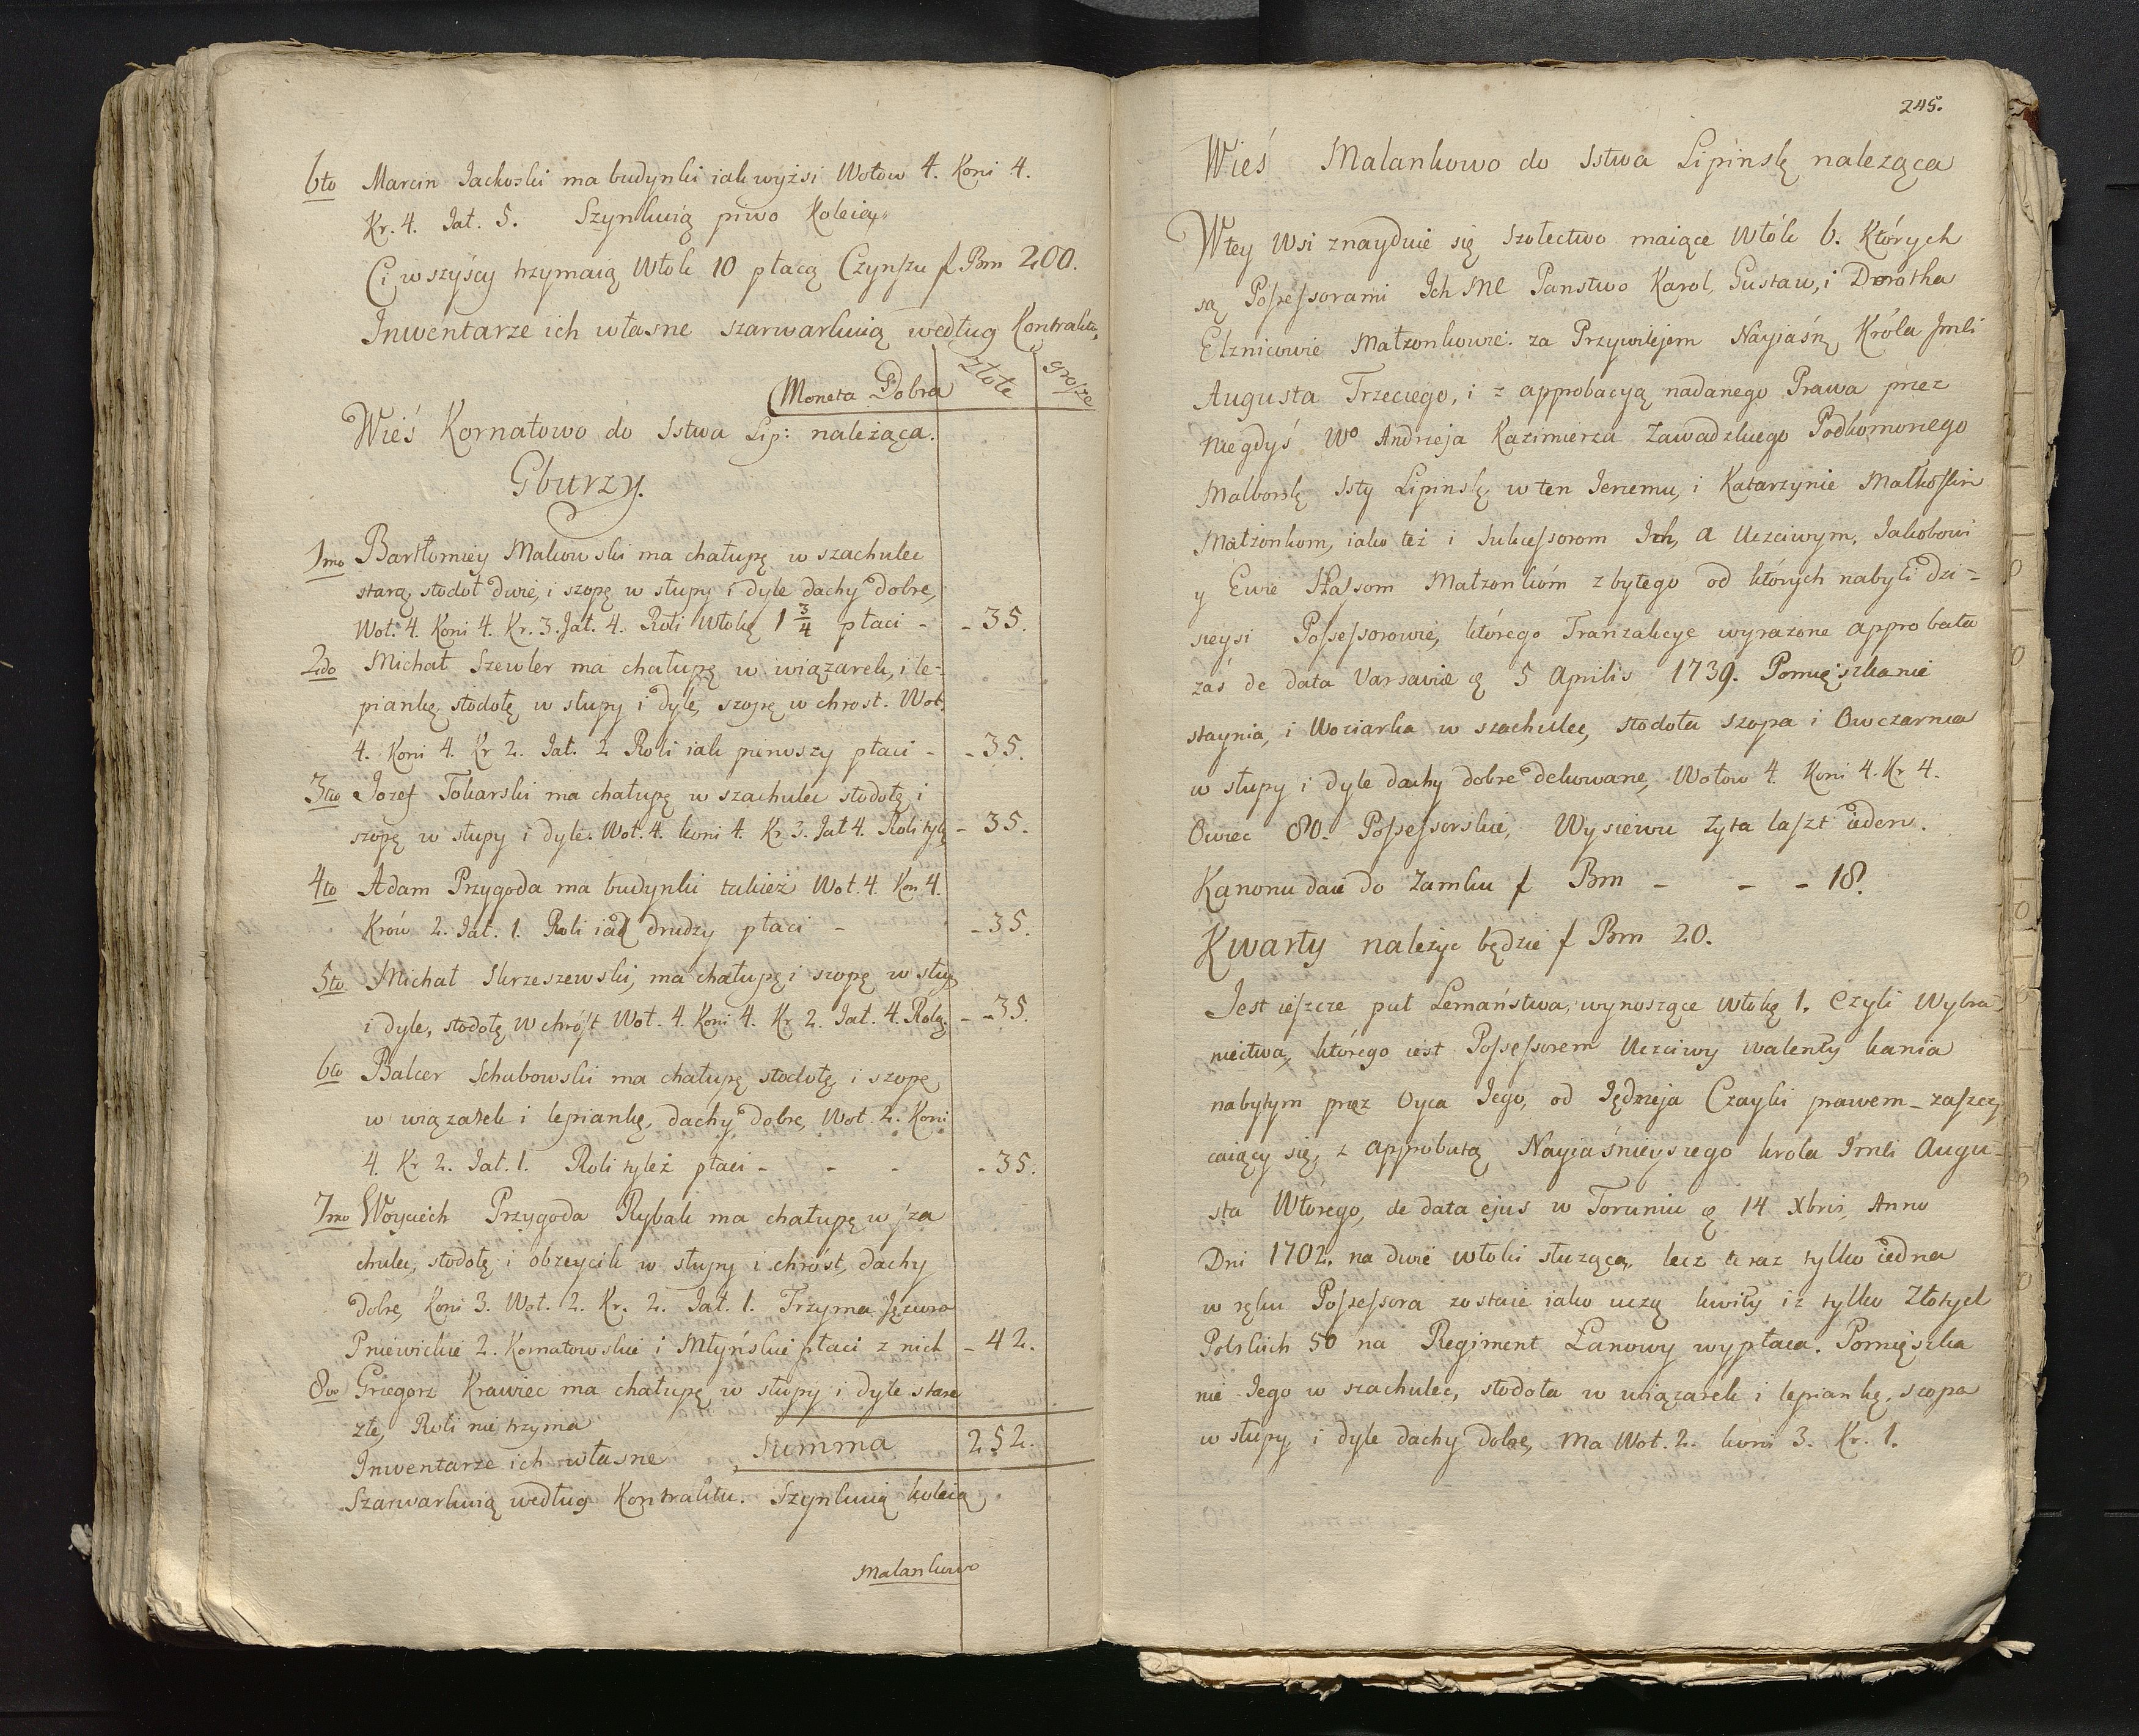 6to Marcin Jackoski ma budynki iak wyżsi Wołow 4. Koni 4.
Kr. 4. Jał. 5. Szynkuią piwo Koleią
Ci wszyscy trzymaią Włók 10 płacą Czynszu f Bm 200.
Inwentarze ich własne szarwarkuią według Kontraktu.
Moneta Dobra złote grosze
Wieś Kornatowo do Sstwa Lip: należąca.
Gburzy.
1mo Bartłomiey Makowski ma chałupę w szachulec
starą, stodoł dwie, i szopę w słupy i dyle dachy dobre,
Woł. 4. Koni 4. Kr. 3. Jał. 4. Roli włókę 1 3/4 płaci - - 35.
2do Michał Szewler ma chałupę w wiązarek, i le-
piankę stodołę w słupy i dyle, szopę w chrost. Woł.
4. Koni 4. Kr 2. Jał. 2 Roli iak pierwszy płaci - - 35.
3tio Jozef Tokarski ma chałupę w szachulec stodołę i
szopę w słupy i dyle. Woł. 4. koni 4. Kr. 3. Jał 4. Roli tylę - 35.
4to Adam Przygoda ma budynki takież Woł. 4. Kon. 4.
Krów 2. Jał. 1. Roli iak drudzy płaci - - 35.
5to Michał Skrzeszewski, ma chałupę i szopę w słupy
i dyle, stodołę w chróst Woł. 4. Koni 4. Kr. 2. Jał. 4. Rolą - - 35.
6to Balcer Schubowski ma chałupę stodołę i szopę
w wiązarek i lepiankę, dachy dobre, Woł. 2. Koni
4. Kr 2. Jał. 1. Roli tyleż płaci - - - - 35.
7mo Woyciech Przygoda Rybak ma chałupę w sza
chulec, stodołę i obzeycik w słupy i chróst, dachy
dobre, Koni 3. Woł. 2. Kr. 2. Jał. 1. Trzyma Jęziora
Pniewickie 2. Kornatowskie i Młyńskie płaci z nich - 42.
8vo Grzegorz Krawiec ma chałupę w słupy i dyle starą
złą, Roli nie trzyma
Inwentarze ich własne Summa 252.
Szarwarkuią według Kontraktu. Szynkuią koleią
Malankowo
245.
Wieś Malankowo do Sstwa Lipinskę należąca
W tey Wsi znayduie się Szołectwo maiące Włók 6. Których
są Possessorami Ich Mć Panstwo Karol, Gustaw, i Dorotha
Elznicowie Małzonkowie. za Przywilejem Nayiaśn Króla Jmći
Augusta Trzeciego, i z approbacyą nadanego Prawa przez
niegdyś Wo Andrzeja Kazimierza Zawadzkiego Podkomorzego
Malborskę Ssty Lipinskę w ten Jerzemu, i Katarzynie Małkossin
Małżonkom, iako też i Sukcessorom Ich, a Uczciwym, Jakobowi
y Ewie Małzonkóm zbytego od których nabyli dzi=
sieysi Possessorowie, którego Tranzakcye wyrazone approbata
zaś de data Varsaviæ 5 Aprilis 1739. Pomięszkanie
staynia, i Woziarka w szachulec, stodoła szopa i Owczarnia
w słupy i dyle dachy dobre dekowane, Wołow 4. Koni 4. Kr 4.
Owiec 80. Possessorskie, Wysiewu Zyta łaszt ieden.
Kanonu daie do Zamku f Bm - - - 18.
Kwarty należyc będzie f Bm 20.
Jest ieszcze puł Lemaństwa, wynoszące włokę 1. Czyli Wybra
niectwa, którego iest Possessorem Uczciwy walenty kania
nabytym przez Oyca Jego, od Jędrzeja Czayki prawem - zaszczy
caiący się, z approbatą Nayiaśnieyszego krola Jmći Augu-
sta Wtórego, de data ejus w Toruniu 14 Xbris, Anno
Dni 1702. na dwie włoki słuzącą, lecz teraz tylko iedna
w ręku Possessora zostaie iako uczą kwity iż tylko Złotych
Polskich 50 na Regiment Lanowy wypłaca. Pomięszka
nie Jego w szachulec, stodoła w wiązarek i lepiankę, szopa
w słupy i dyle dachy dobre, ma Woł. 2. koni 3. Kr. 1.